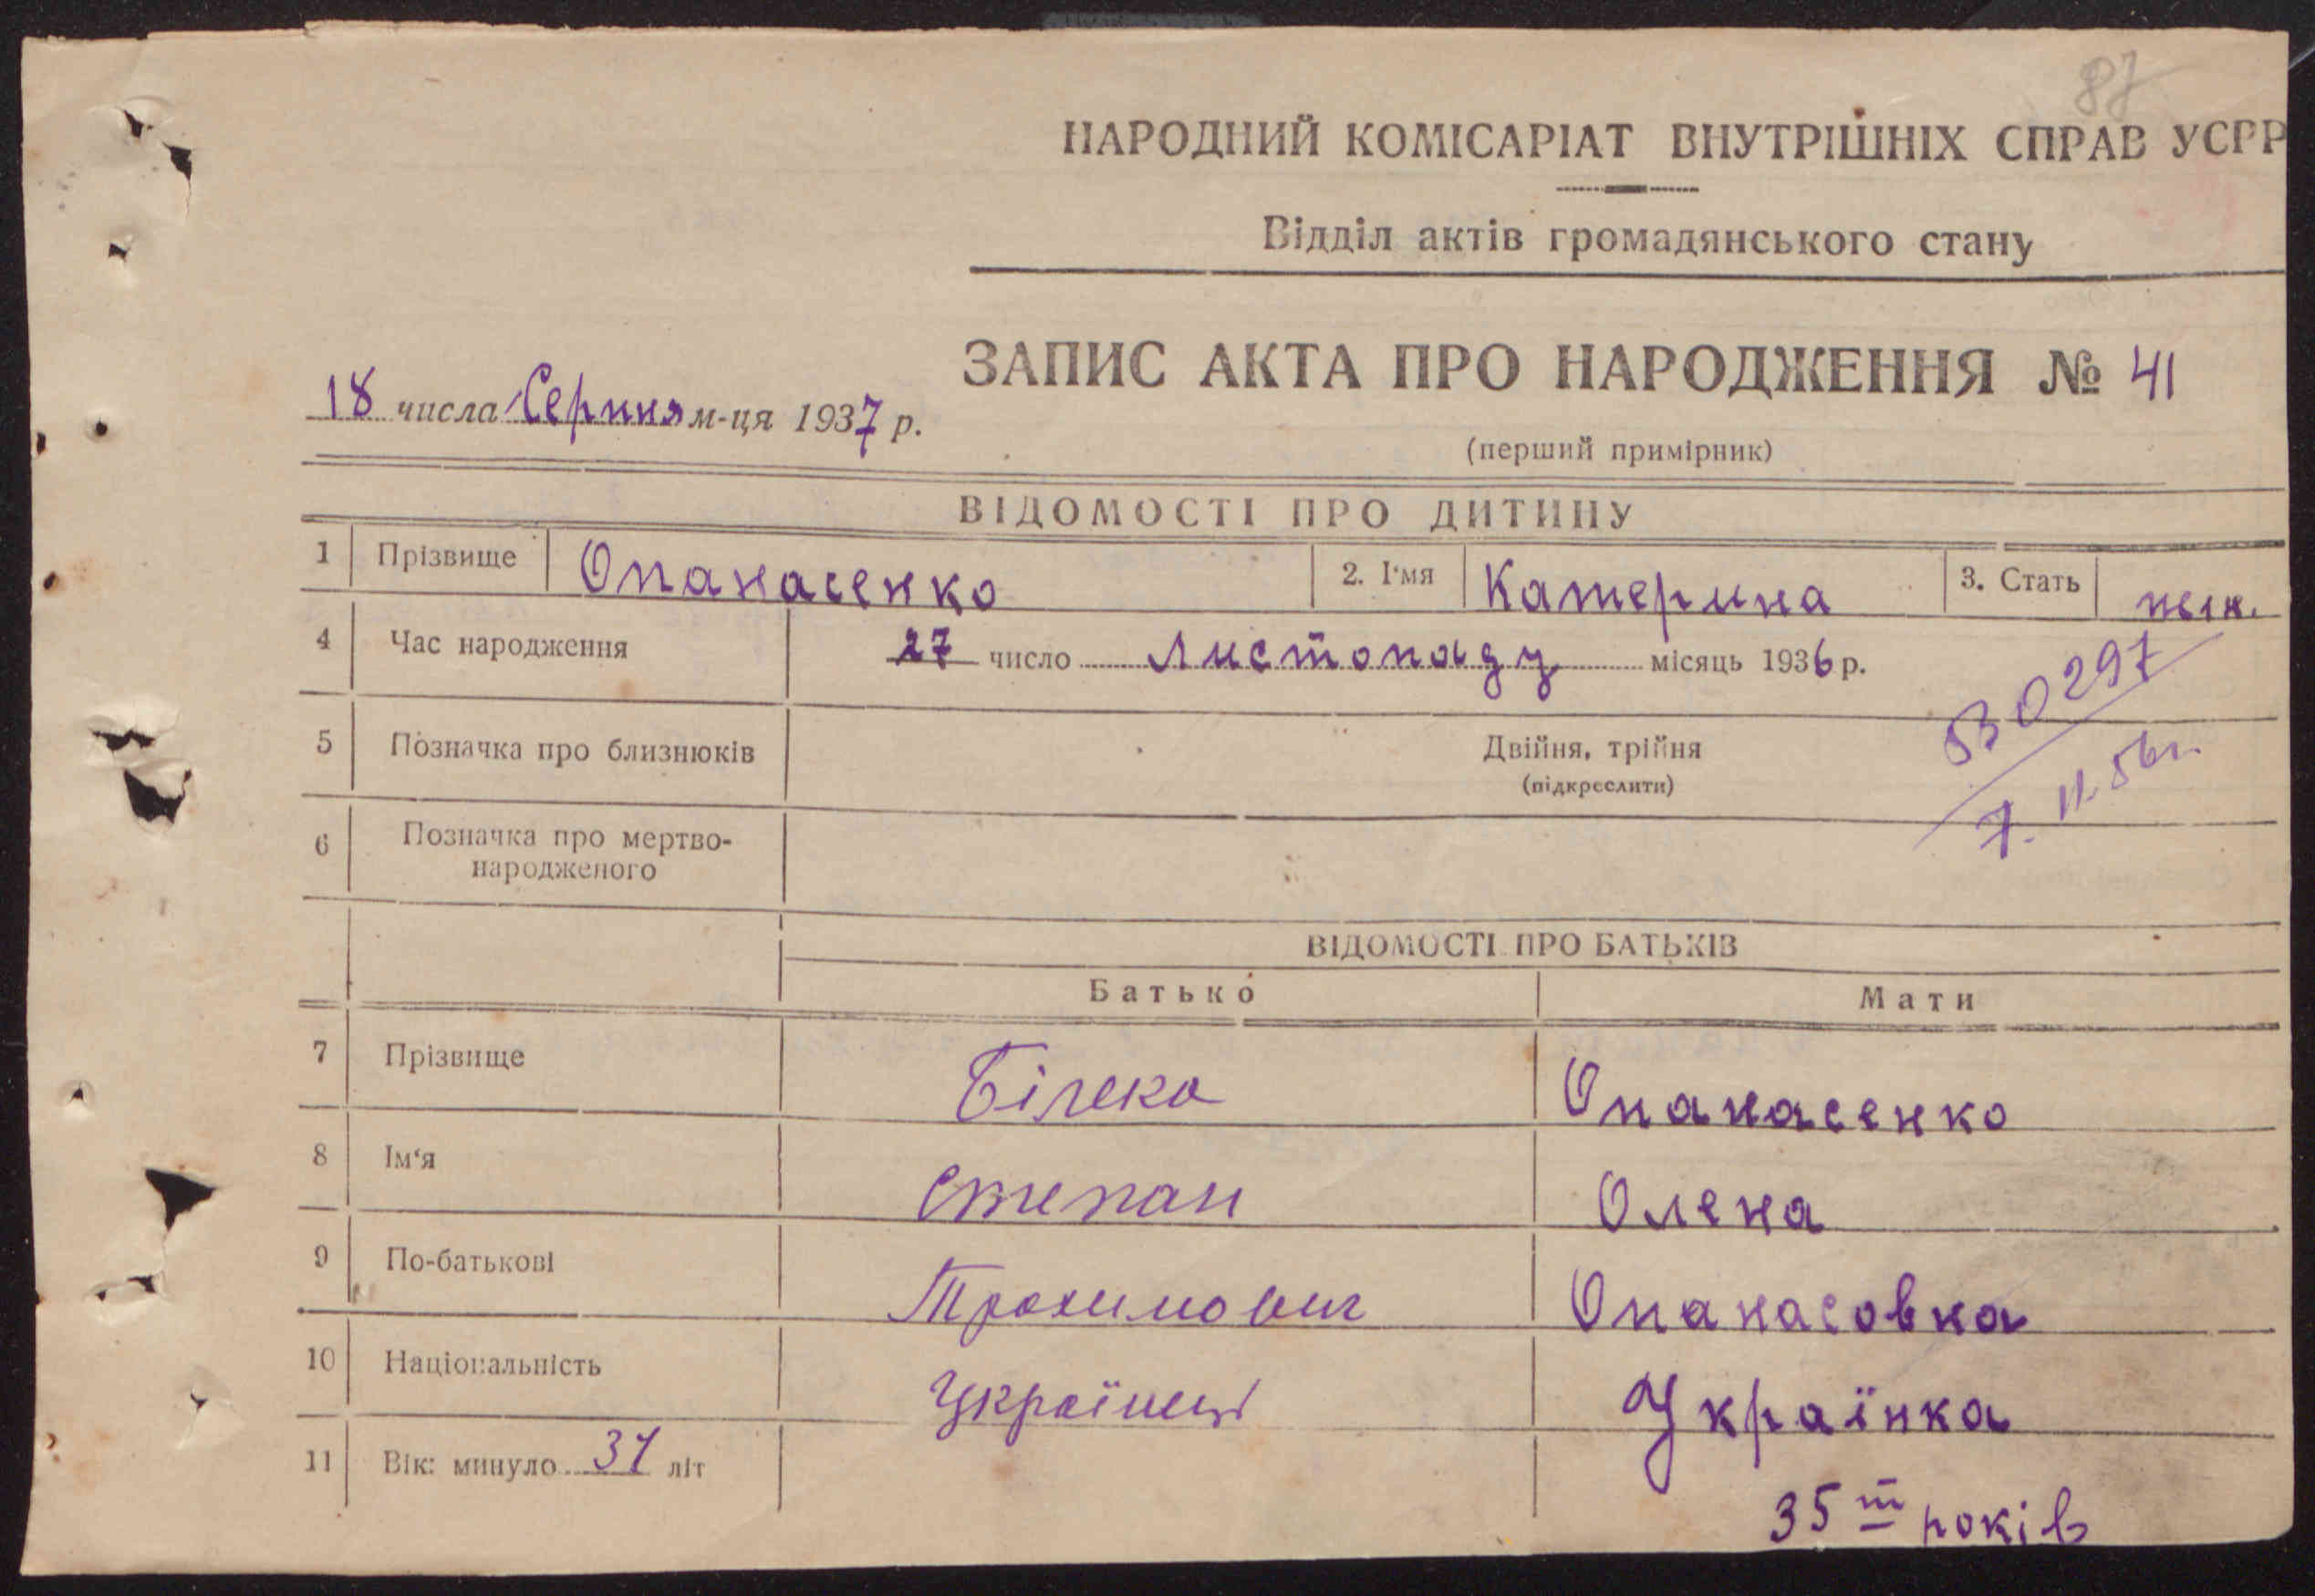 87
НАРОДНИЙ КОМІСАРІАТ ВНУТРІШНІХ СПРАВ УСРР
Відділ актів громадянського стану
ЗАПИС АКТА ПРО НАРОДЖЕННЯ № 41
18 числа Серпня м-ця 1937 р.
(перший примірник)
ВІДОМОСТІ ПРО ДИТИНУ
1 Прізвище Опанасенко 2. І'мя Катерина 3. Стать жін.
4 Час народження 27 число Листопаду місяць 1936 р.
5 Позначка про близнюків Двійня, трійня
(підкреслити)
0297
7. 11. 56 г.
6 Позначка про мертво-
народженого
ВІДОМОСТІ ПРО БАТЬКІВ
Батько Мати
7 Прізвище Білека Опанасенко
8 Ім'я Степан Олена
9 По-батькові Трохимович Опанасовна
10 Національність Українец Українка
11 Вік: минуло 37 літ 35 т років